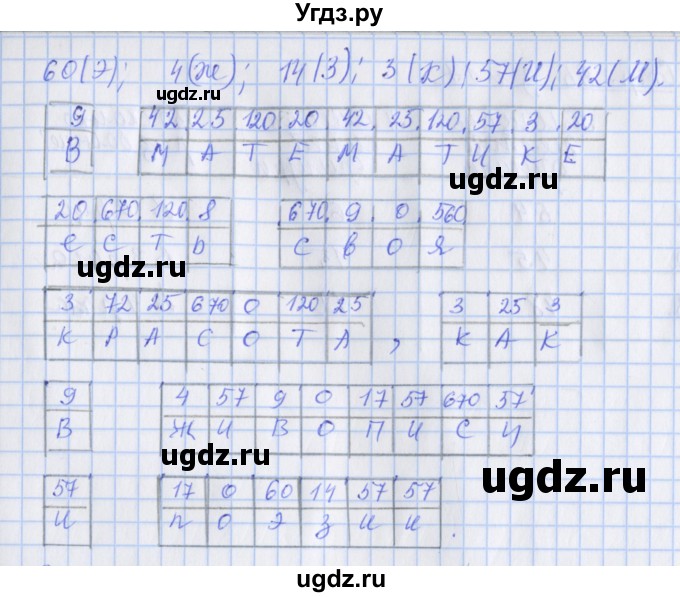 Угдз.ру
60(Э); 4(ж); 14(З); 3(К) 57(И); 42(М).
ugdz.ru
9 42 25 120 20 42 25 120 57 3 20
В М А Т Е М А Т И К Е
ugdz.ru
20 670 120 8 670 9 0 560
е С Т Ь С В О Я
ugdz.ru
3 72 25 670 0 120 25 3 25 3
К Р А С О Т А , К А К
ugdz.ru
9 4 57 9 0 17 57 670 57
В Ж И В О П И С И
ugdz.ru
57 17 0 60 14 57 57
И П О Э З И И .
ugdz.ru